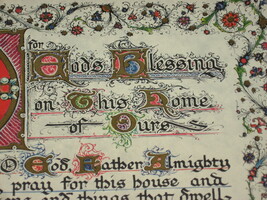 for God's Blessing
on This Home
of Ours
O God, Father Almighty
pray for this house and
and things that dwell